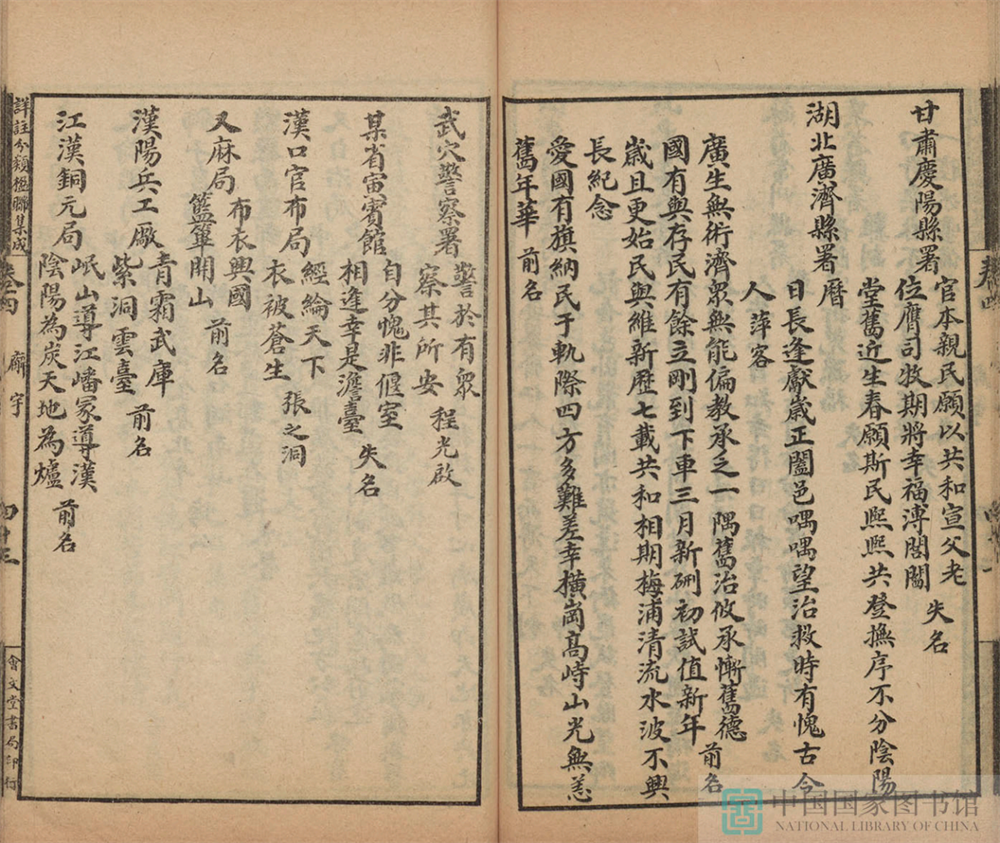 甘肅慶陽縣署
官本親民願以共和宣父老
位膺司牧期將幸福溥閭閻
失名
湖北廣濟縣署
堂舊近生春願斯民熙熙共登撫序不分陰陽曆
日長逢獻歲正闔邑喁喁望治救時有愧古今人
萍客
廣生無術濟眾無能偏教承之一隅舊治攸承慚舊德
國有與存民有餘立剛到下車三月新硎初試值新年
前名
歲且更始民與維新歷七載共和相期梅浦清流水波不興長紀念
愛國有旗納民于軌際四方多難差幸橫崗高峙山光無恙舊年華
前名
武穴警察署
警於有眾
察其所安
程光啟
某省宙賓館
自分愧非偃室
相逢幸是澹臺
失名
漢口官布局
經綸天下
衣被蒼生
張之洞
又麻局
布衣興國
籃篳開山
前名
漢陽兵工廠
青霜武庫
紫洞雲臺
前名
江漢銅元局
岷山導江嶓冢導漢
陰陽為炭天地為爐
前名
詳註分類楹聯集成
卷四
廨宇
會文堂書局印行
中国国家图书馆
NATIONAL LIBRARY OF CHINA